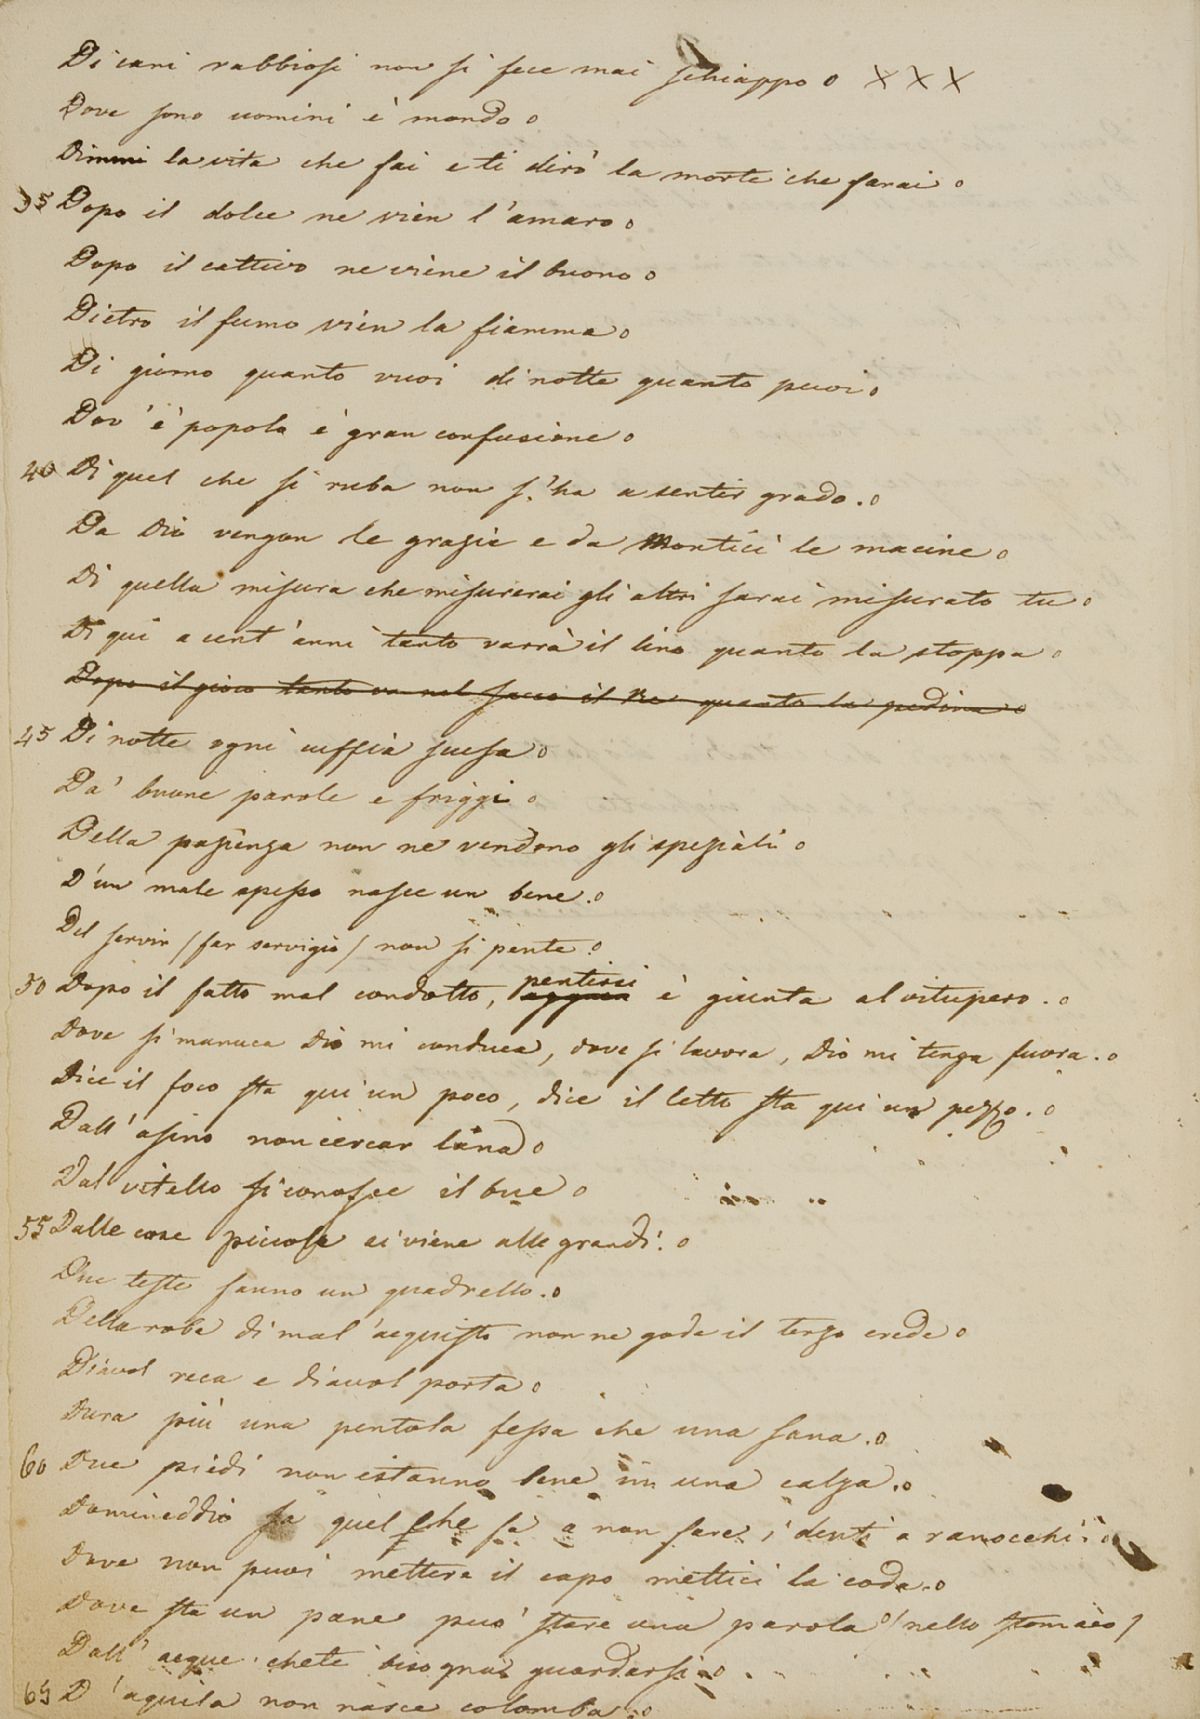 Di cani rabbiosi non si fece mai schiappo o X X X
Dove sono uomini è mondo o
Dimmi la vita che fai e ti dirò la morte che farai o
35 Dopo il dolce ne vien l'amaro o
Dopo il cattivo ne viene il buono o
Dietro il fumo vien la fiamma o
Di giorno quanto vuoi di notte quanto puoi o
Dov'è popolo è gran confusione o
40 Di quel che si ruba non s'ha a sentir grado. o
Da Dio vengon le grazie e da Montici le macine o
Di quella misura che misurerai gli altri sarai misurato tu o
Di qui a cent'anni tanto varrà il lino quanto la stoppa o
Dopo il gioco tanto va nel sacco il Re quanto la pedina o
45 Di notte ogni cuffia scusa o
Da' buone parole e friggi o
Della pazienza non ne vendono gli speziali o
D'un male spesso nasce un bene. o
Del servir (far servigio) non si pente o
50 Dopo il fatto mal condotto, pentirsi è giunta al vitupero. o
Dove si manuca Dio mi conduca, dove si lavora, Dio mi tenga fuora. o
Dice il foco sta qui un poco, dice il letto sta qui un pezzo. o
Dall'asino non cercar lana o
Dal vitello si conosce il bue o
55 Dalle cose piccole si viene alle grandi. o
Due teste fanno un quadrello. o
Della roba di mal'acquisto non ne gode il terzo erede o
Diavol reca e diavol porta o
Dura più una pentola fessa che una sana. o
60 Due piedi non istanno bene in una calza. o
Domineddio fa quel che fa a non fare i denti a ranocchi. o
Dove non puoi mettere il capo mettici la coda. o
Dove sta un pane può stare una parola o (nello stomaco)
Dall'acque chete bisogna guardarsi. o
65 D'aquila non nasce colomba. o